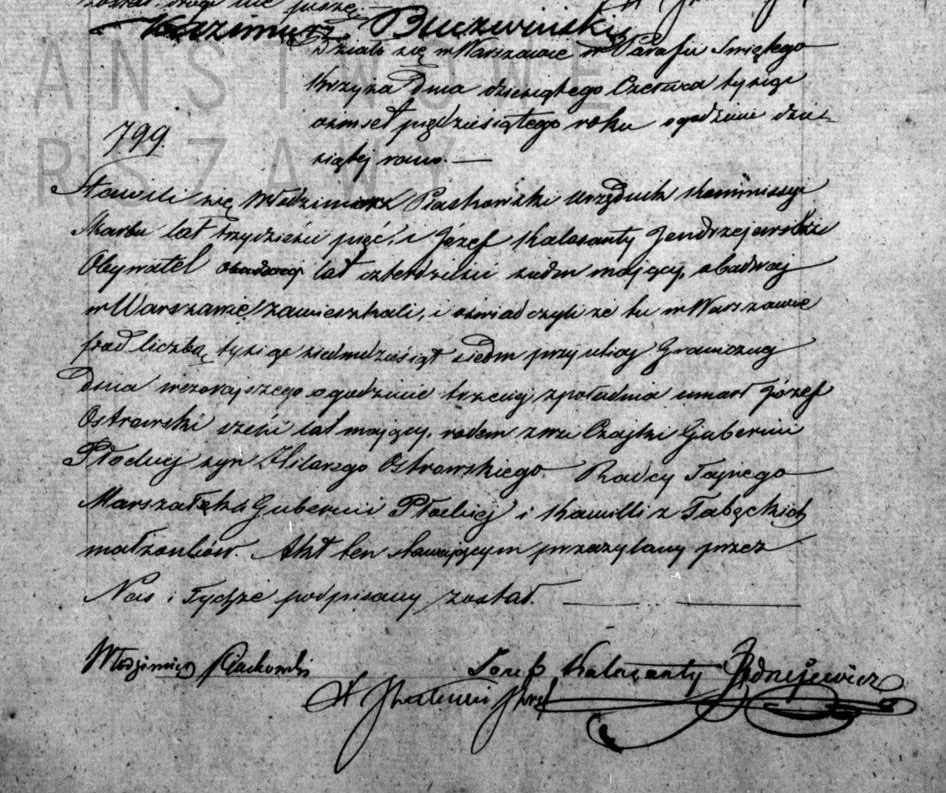 został, drugi nie pisze.
Kazimierz Buczewiński
ANSTWOWE
RSZAWY
799.
Działo się w Warszawie w Parafii Świętego
Krzyża dnia dziesiątego Czerwca tysiąc
ośmset pięćdziesiątego roku o godzinie dzie-
siątej rano. —
Stawili się Włodzimierz Piaskowski urzędnik Kommissyi
Skarbu lat trzydzieści pięć, i Józef Kalasanty Jendrzejewski
Obywatel lat czterdzieści siedm mający, obadwaj
w Warszawie zamieszkali, i oświadczyli że tu w Warszawie
pod liczbą tysiąc siedmdziesiąt siedm przy ulicy Granicznej
Dnia wczorajszego o godzinie trzeciej z południa umarł Józef
Ostrowski sześć lat mający, rodem z wsi Czajki Gubernii
Płockiej syn Hilarego Ostrowskiego Radcy Tajnego
Marszałka Gubernii Płockiej i Kamilli z
małżonków. Akt ten stawającym przeczytany przez
Nas i Tychże podpisany został. — —
Włodzimierz Piaskowski Józef Kalasanty
X